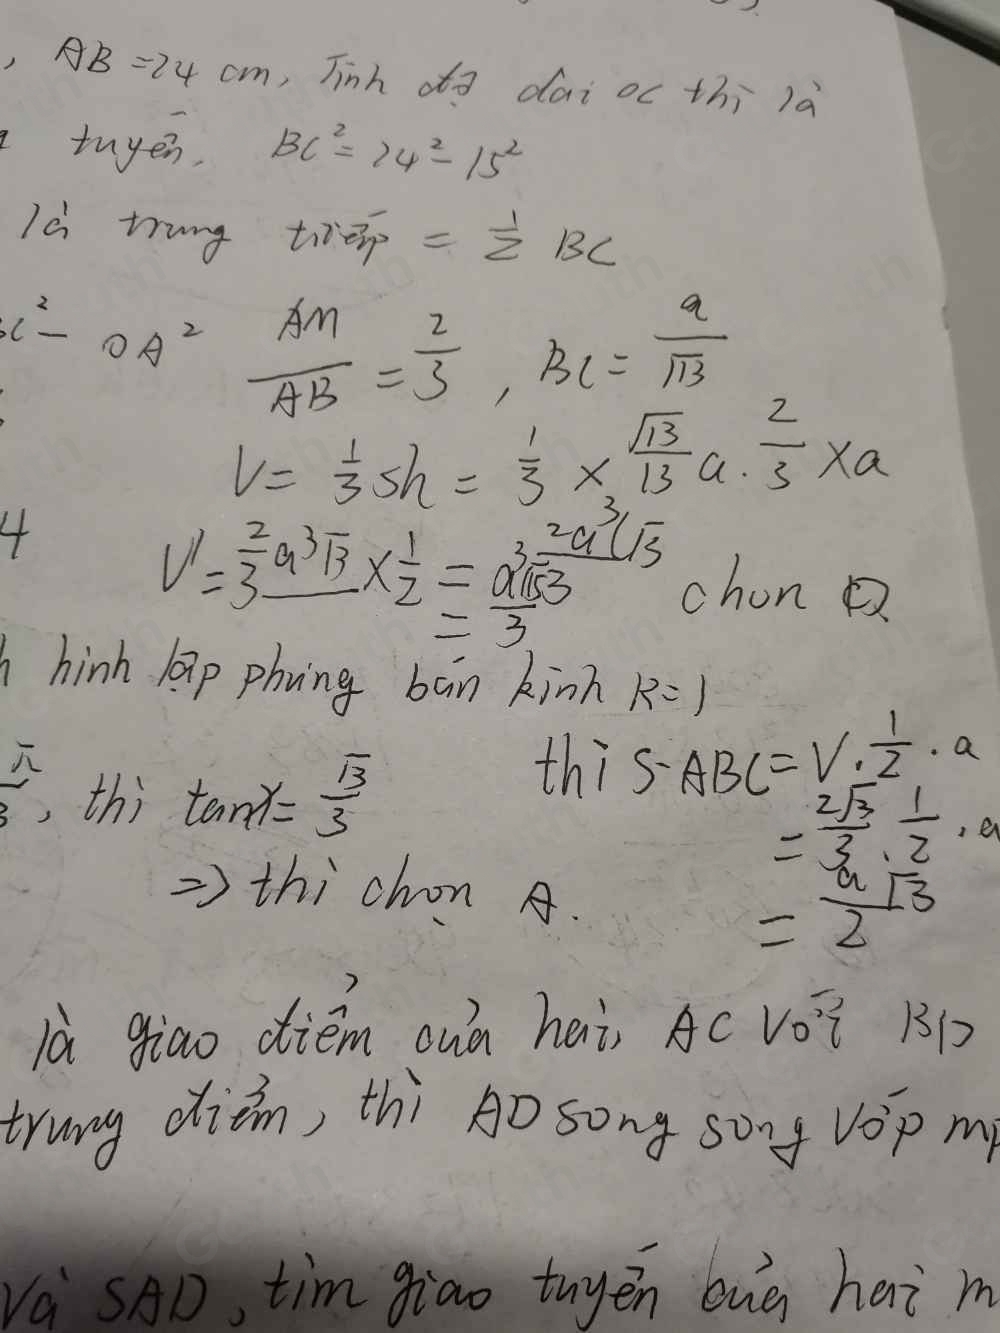 , AB = 24 cm, Tính độ dài OC thì là
tuyến. BC² = 24² - 15²
là trung tiếp = 1/2 BC
BC² - OA² AM/AB = 2/3, BC = a/√13
V = 1/3 sh = 1/3 × √13/13 a . 2/3 × a
4
V' = 2/3 a³√3 × 1/2 = 2a³√3/3
= a³√15/3 chọn D
h hình lập phương bán kính R = 1
π/3, thì tanx = √3/3 thì S-ABC = V . 1/2 . a
= 2√3/3 . 1/2 . a
=> thì chọn A. = a√3/2
là giao điểm của hai, AC với BD
trung điểm, thì AD song song với mp
và SAD, tìm giao tuyến của hai m